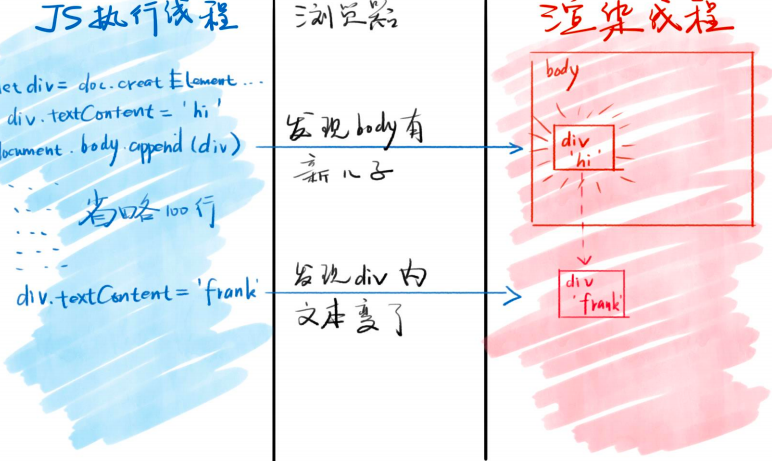 JS执行线程
let div = doc.creat Element...
div.textContent = 'hi'
document.body.append(div)
省略100行
div.textContent = 'frank'
浏览器
发现body有
新儿子
发现div内
文本变了
渲染线程
body
div
'hi'
div
'frank'